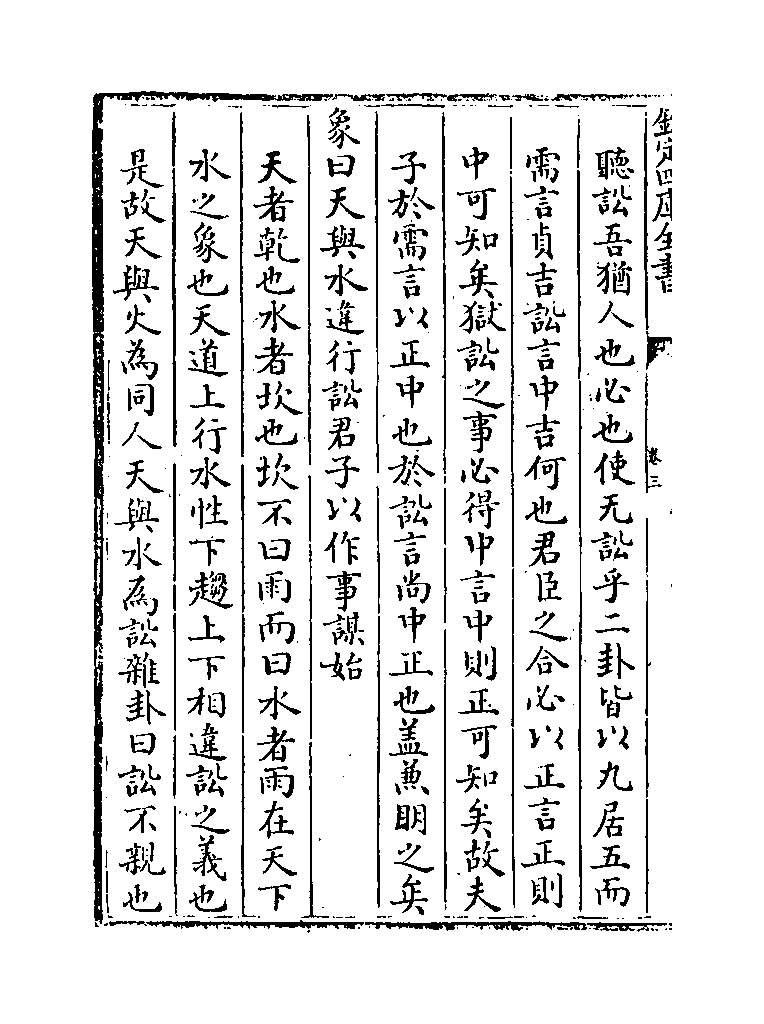 欽定四庫全書
卷三
聽訟吾猶人也必也使无訟乎二卦皆以九居五而
需言貞吉訟言中吉何也君臣之合必以正言正則
中可知矣獄訟之事必得中言中則正可知矣故夫
子於需言以正中也於訟言尚中正也盖兼明之矣
象曰天與水違行訟君子以作事謀始
天者乾也水者坎也坎不曰雨而曰水者雨在天下
水之象也天道上行水性下趨上下相違訟之義也
是故天與火為同人天與水為訟雜卦曰訟不親也